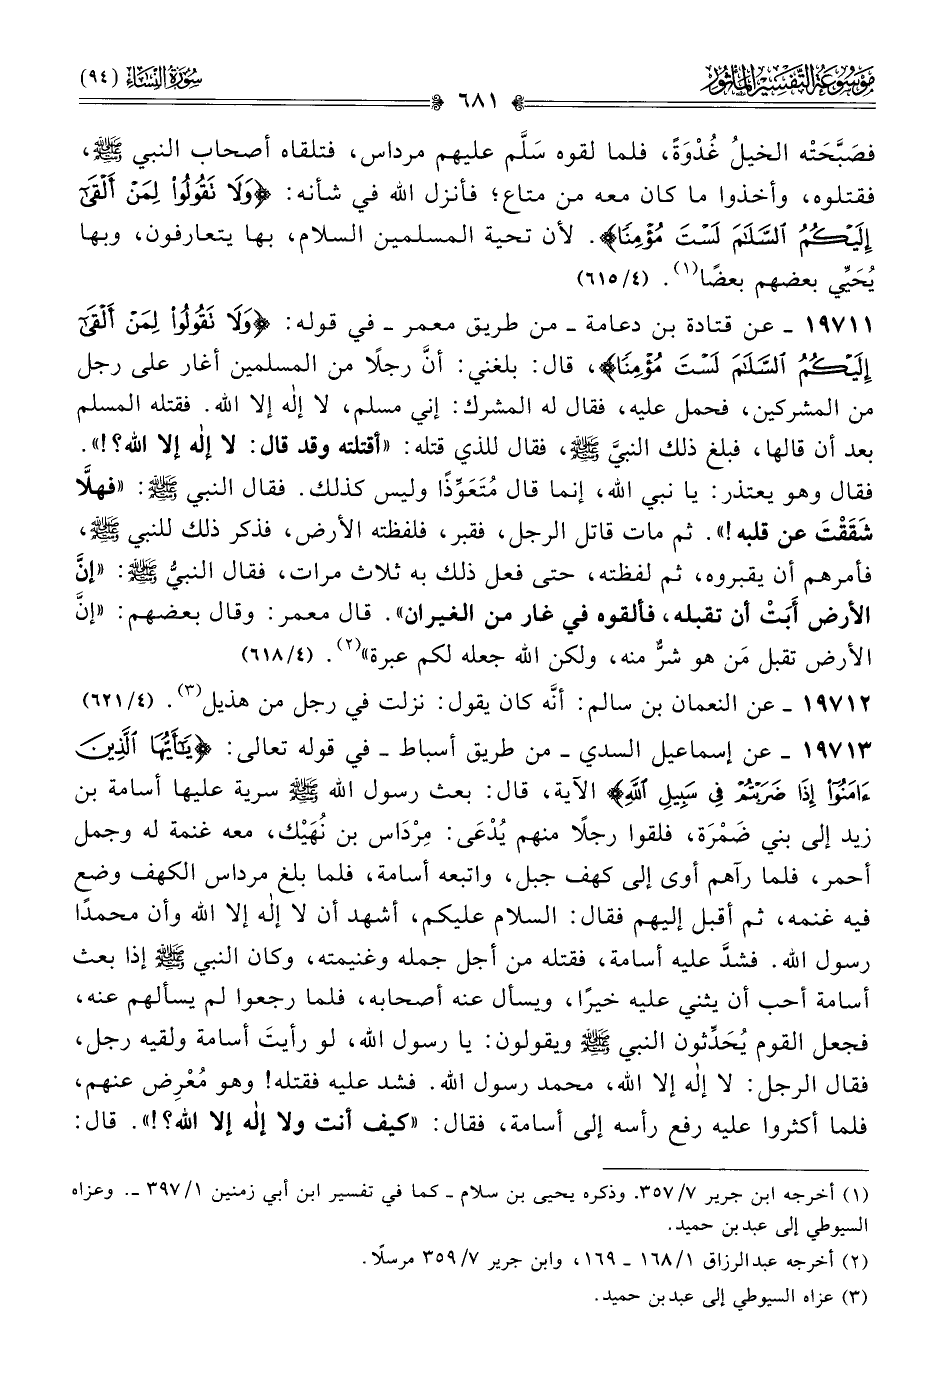 مُوسُوعَةُ التَّفْسِيرِ المَأْثُورِ
سُورَةُ النِّسَاءِ (٩٤)
٦٨١
فصَبَّحَتْه الخيلُ غُدْوَةً، فلما لقوه سَلَّم عليهم مرداس، فتلقاه أصحاب النبي ﷺ،
فقتلوه، وأخذوا ما كان معه من متاع؛ فأنزل الله في شأنه: ﴿وَلَا نَقُولُوا۟ لِمَنْ أَلْقَىٰٓ
إِلَيْكُمُ ٱلسَّلَٰمَ لَسْتَ مُؤْمِنًا﴾. لأن تحية المسلمين السلام، بها يتعارفون، وبها
يُحَيِّي بعضهم بعضًا(١). (٦١٥/٤)
١٩٧١١ ـ عن قتادة بن دعامة ـ من طريق معمر ـ في قوله: ﴿وَلَا نَقُولُوا۟ لِمَنْ أَلْقَىٰٓ
إِلَيْكُمُ ٱلسَّلَٰمَ لَسْتَ مُؤْمِنًا﴾، قال: بلغني: أنَّ رجلًا من المسلمين أغار على رجل
من المشركين، فحمل عليه، فقال له المشرك: إني مسلم، لا إلٰه إلا الله. فقتله المسلم
بعد أن قالها، فبلغ ذلك النبيَّ ﷺ، فقال للذي قتله: «أقتلته وقد قال: لا إلٰه إلا الله؟!».
فقال وهو يعتذر: يا نبي الله، إنما قال مُتَعَوِّذًا وليس كذلك. فقال النبي ﷺ: «فهلَّا
شَقَقْتَ عن قلبه!». ثم مات قاتل الرجل، فقبر، فلفظته الأرض، فذكر ذلك للنبي ﷺ،
فأمرهم أن يقبروه، ثم لفظته، حتى فعل ذلك به ثلاث مرات، فقال النبيُّ ﷺ: «إنَّ
الأرض أَبَتْ أن تقبله، فألقوه في غار من الغيران». قال معمر: وقال بعضهم: «إنَّ
الأرض تقبل مَن هو شرٌّ منه، ولكن الله جعله لكم عبرة»(٢). (٦١٨/٤)
١٩٧١٢ ـ عن النعمان بن سالم: أنَّه كان يقول: نزلت في رجل من هذيل(٣). (٦٢١/٤)
١٩٧١٣ ـ عن إسماعيل السدي ـ من طريق أسباط ـ في قوله تعالى: ﴿يَٰٓأَيُّهَا ٱلَّذِينَ
ءَامَنُوٓا۟ إِذَا ضَرَبْتُمْ فِى سَبِيلِ ٱللَّهِ﴾ الآية، قال: بعث رسول الله ﷺ سرية عليها أسامة بن
زيد إلى بني ضَمْرَة، فلقوا رجلًا منهم يُدْعَى: مِرْدَاس بن نُهَيْك، معه غنمة له وجمل
أحمر، فلما رآهم أوى إلى كهف جبل، واتبعه أسامة، فلما بلغ مرداس الكهف وضع
فيه غنمه، ثم أقبل إليهم فقال: السلام عليكم، أشهد أن لا إلٰه إلا الله وأن محمدًا
رسول الله. فشدَّ عليه أسامة، فقتله من أجل جمله وغنيمته، وكان النبي ﷺ إذا بعث
أسامة أحب أن يثني عليه خيرًا، ويسأل عنه أصحابه، فلما رجعوا لم يسألهم عنه،
فجعل القوم يُحَدِّثون النبي ﷺ ويقولون: يا رسول الله، لو رأيتَ أسامة ولقيه رجل،
فقال الرجل: لا إلٰه إلا الله، محمد رسول الله. فشد عليه فقتله! وهو مُعْرِض عنهم،
فلما أكثروا عليه رفع رأسه إلى أسامة، فقال: «كيف أنت ولا إلٰه إلا الله؟!». قال:
(١) أخرجه ابن جرير ٣٥٧/٧. وذكره يحيى بن سلام ـ كما في تفسير ابن أبي زمنين ٣٩٧/١ ـ. وعزاه
السيوطي إلى عبد بن حميد.
(٢) أخرجه عبدالرزاق ١٦٨/١ ـ ١٦٩، وابن جرير ٣٥٩/٧ مرسلًا.
(٣) عزاه السيوطي إلى عبد بن حميد.